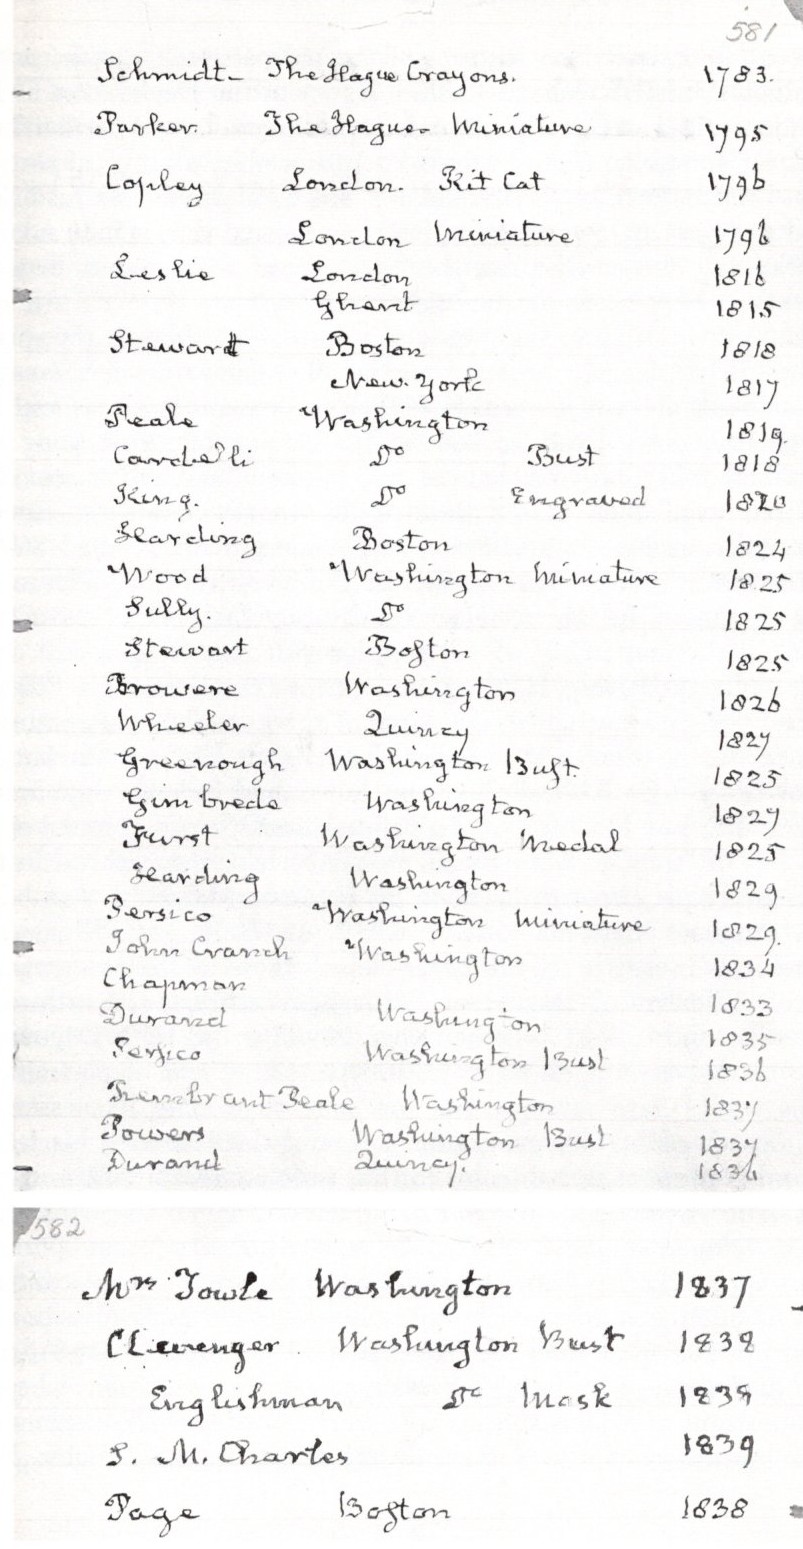 581
Schmidt - The Hague Crayons. 1783.
Parker. The Hague - Miniature 1795
Copley London. Kit Cat 1796
London Miniature 1796
Leslie London 1816
Ghent 1815
Stewart Boston 1818
New York 1817
Peale Washington 1819
Cardelli Do Bust 1818
King. Do Engraved 1820
Harding Boston 1824
Wood Washington Miniature 1825
Sully. Do 1825
Stewart Boston 1825
Browere Washington 1826
Wheeler Quincy 1827
Greenough Washington Bust 1825
Gimbrede Washington 1827
Furst Washington Medal 1825
Harding Washington 1829
Persico Washington Miniature 1829.
John Cranch Washington 1834
Chapman 1833
Durand Washington 1835
Persico Washington Bust 1836
Rembrant Peale Washington 1837
Powers Washington Bust 1837
Durand Quincy. 1836
582
Mrs Towle Washington 1837
Clevenger. Washington Bust 1838
Englishman Do Mask 1839
S. M. Charles 1839
Page Boston 1838